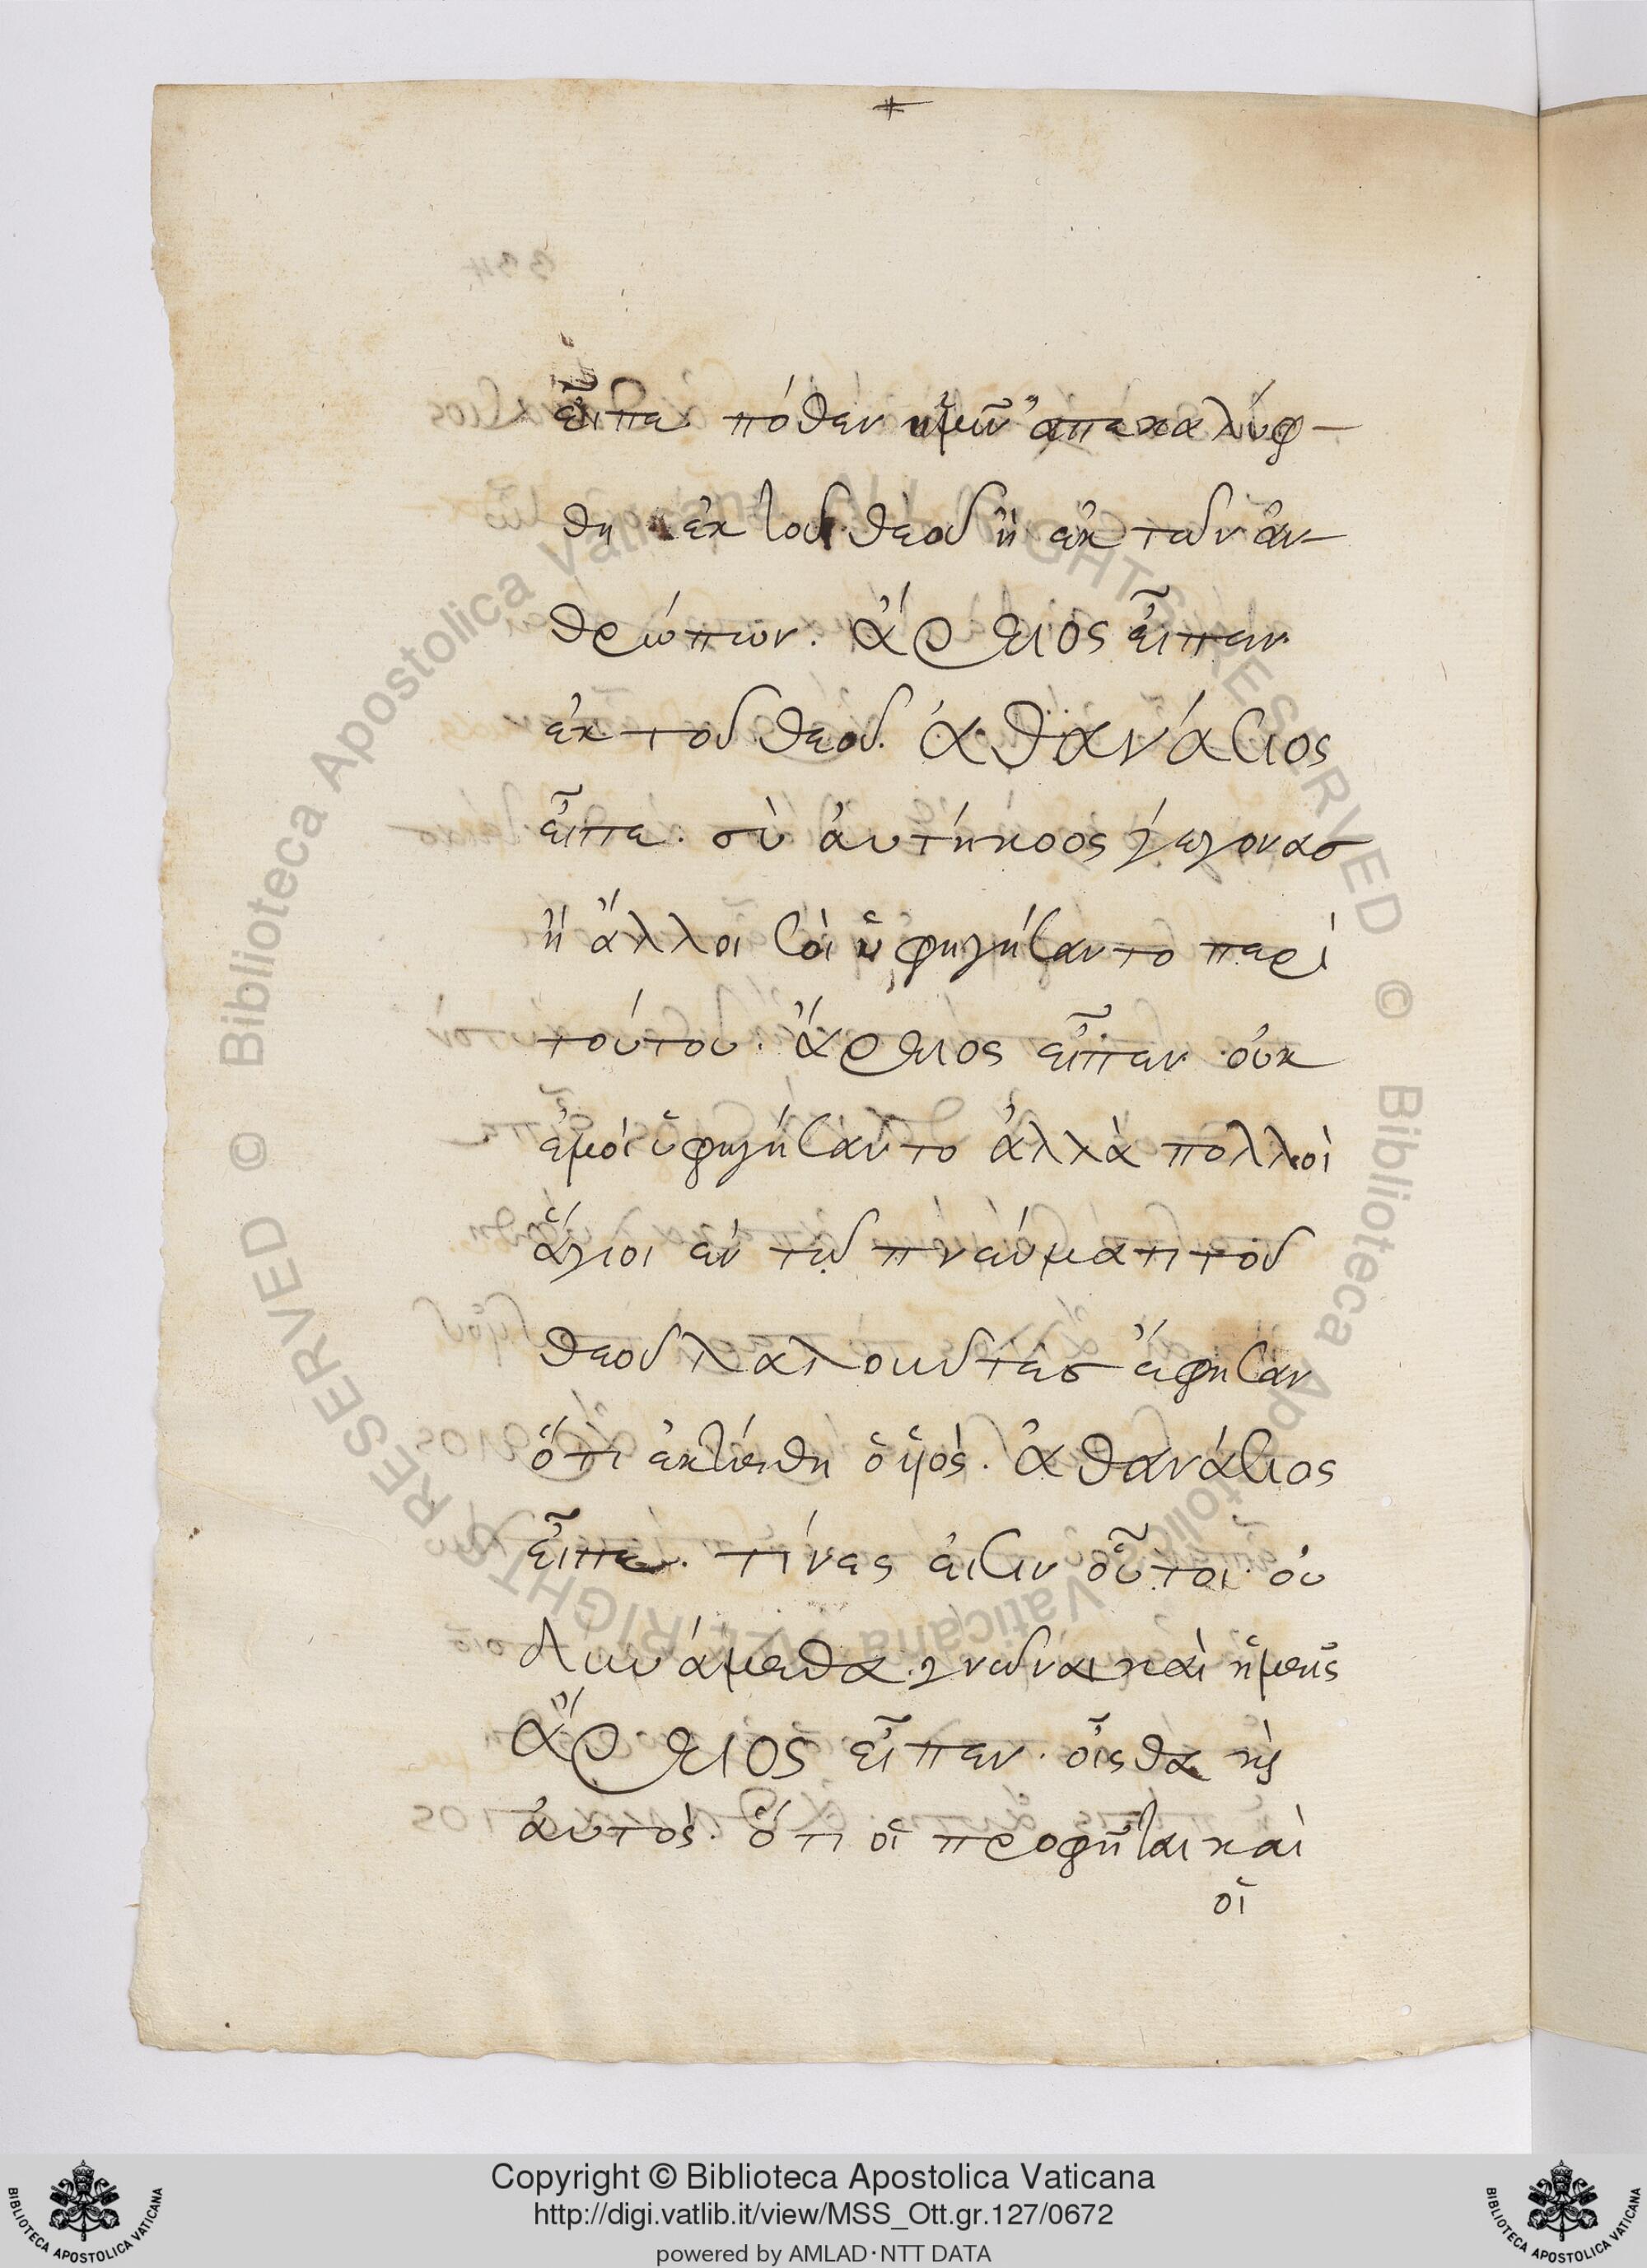 εἶπε· πόθεν ὑμῖν ἀπεκαλύφ-
θη ἐκ τοῦ θεοῦ ἢ ἐκ τῶν ἀν-
θρώπων. ἄρειος εἶπεν·
ἐκ τοῦ θεοῦ. ἀθανάσιος
εἶπε· σὺ αὐτήκοος γέγονας
ἢ ἄλλοι σοὶ ὑφηγήσαντο περὶ
τούτου. ἄρειος εἶπεν· οὐκ
ἐμοὶ ὑφηγήσαντο ἀλλὰ πολλοὶ
ἅγιοι ἐν τῷ πνεύματι τοῦ
θεοῦ λαλοῦντες ἔφησαν
ὅτι ἐκτίσθη ὁ ὑιός. ἀθανάσιος
εἶπε. τίνες εἰσιν οὗτοι οὐ
δυνάμεθα γνῶναι καὶ ἡμεῖς
ἄρειος εἶπεν· οἶσθα καὶ
αὐτός. ὅτι οἱ προφῆται καὶ
οἱ
Copyright © Biblioteca Apostolica Vaticana
http://digi.vatlib.it/view/MSS_Ott.gr.127/0672
powered by AMLAD·NTT DATA
BIBLIOTECA APOSTOLICA VATICANA
BIBLIOTECA APOSTOLICA VATICANA
© Biblioteca Apostolica Vaticana ALL RIGHTS RESERVED © Biblioteca Apostolica Vaticana ALL RIGHTS RESERVED